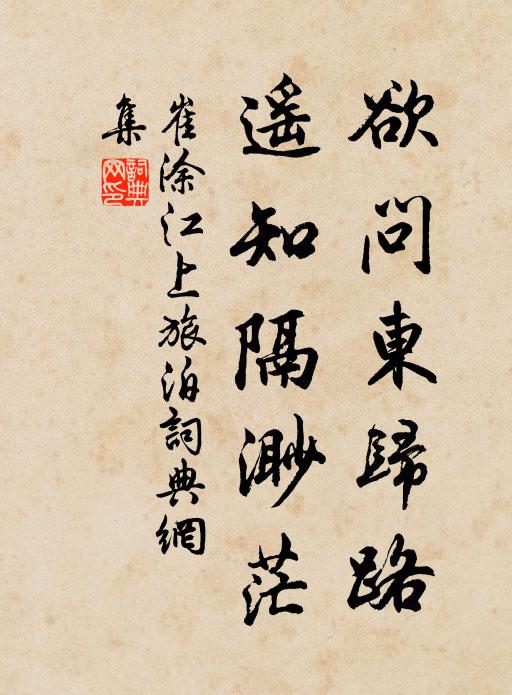 欲問東歸路
遥知隔渺茫
崔涂江上旅泊詞典網
集
詞典網印